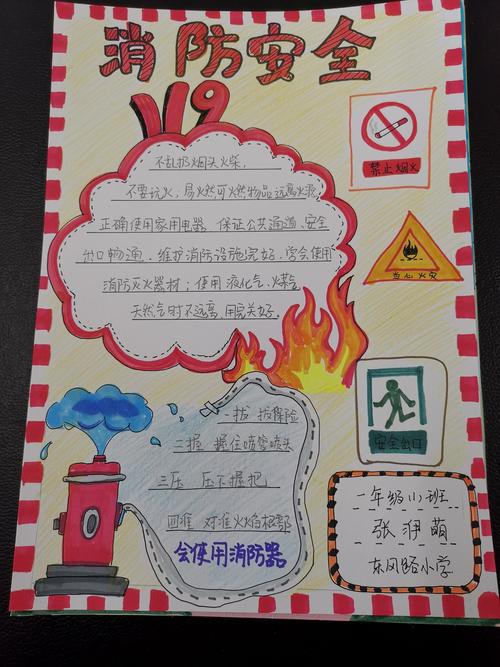 消防安全
119
不乱扔烟头火柴,
不要玩火,易燃可燃物品远离火源,
正确使用家用电器、保证公共通道、安全
出口畅通、维护消防设施完好,学会使用
消防灭火器材;使用液化气、煤气
天然气时不远离,用完关好。
禁止烟火
当心火灾
安全出口
一拔 拔保险
二握 握住喷管喷头
三压 压下握把
四准 对准火焰根部
会使用消防器
一年级(1)班
张伊萌
东风路小学